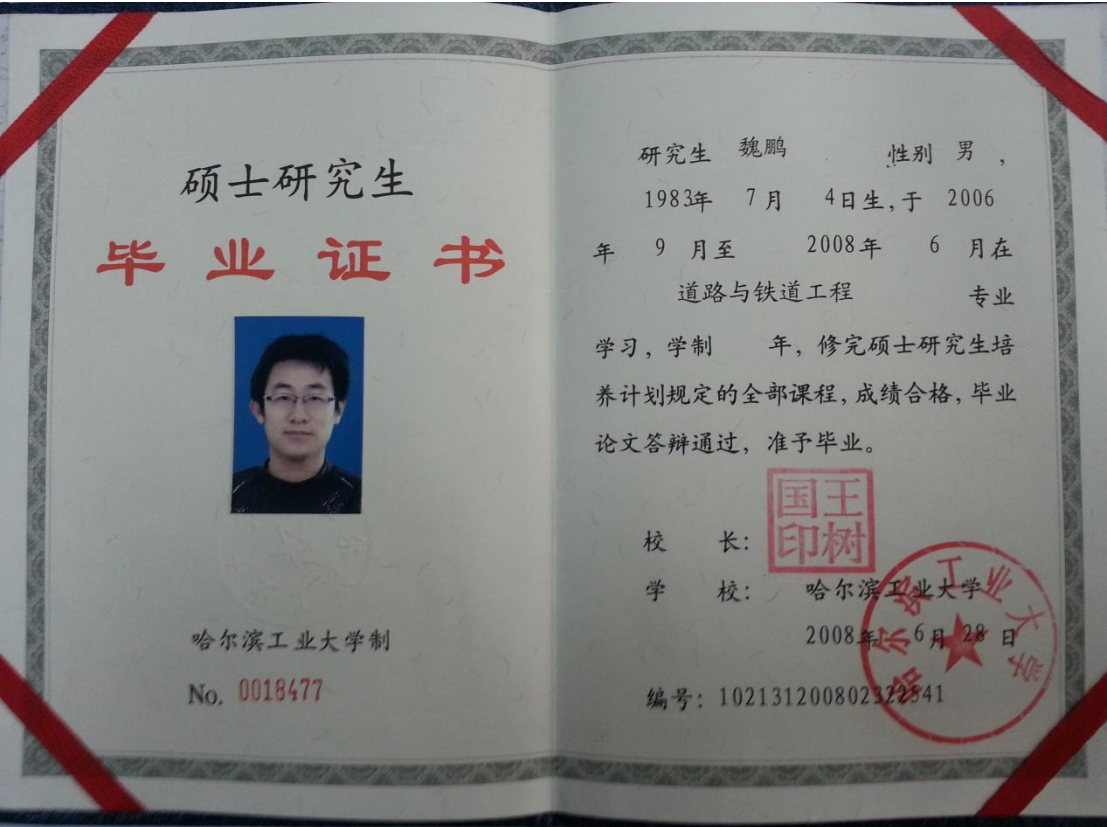 硕士研究生
毕业证书
哈尔滨工业大学制
No. 0018477
研究生 魏鹏 性别 男 ,
1983年 7月 4日生,于 2006
年 9 月至 2008年 6 月在
道路与铁道工程 专业
学习,学制 年,修完硕士研究生培
养计划规定的全部课程,成绩合格,毕业
论文答辩通过,准予毕业。
校 长:
王树国印
学 校: 哈尔滨工业大学
2008年 6月 28 日
哈尔滨工业大学
编号:102131200802322541